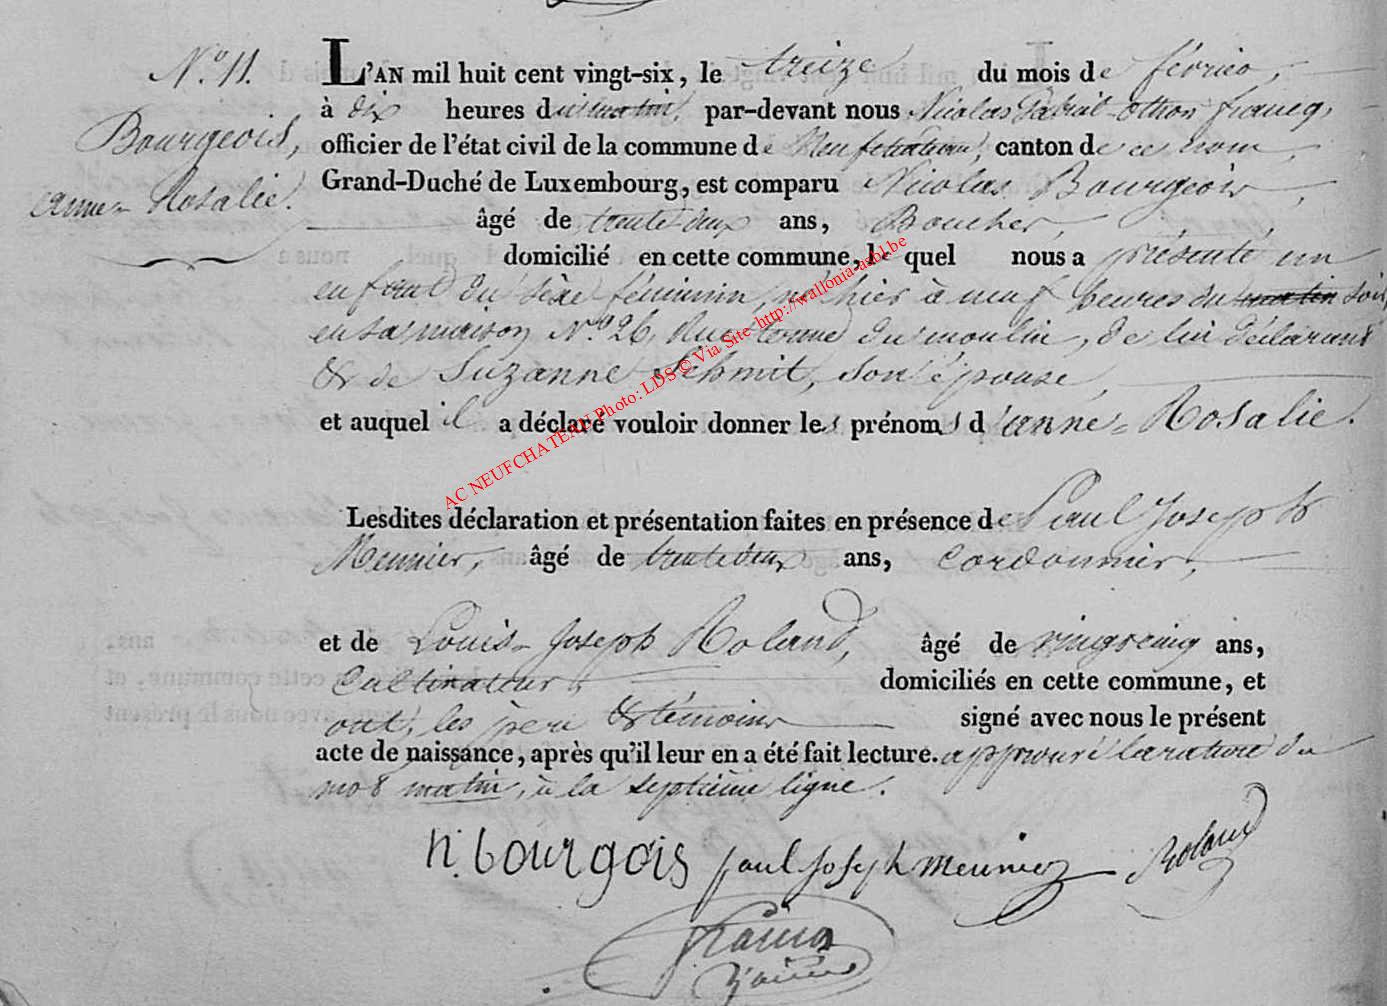 N.° 11.
Bourgeois,
anne-Rosalie.
L'AN mil huit cent vingt-six, le treize du mois de février,
à dix heures du matin, par-devant nous Nicolas Gabriel Othon francq,
officier de l'état civil de la commune de Neufchateau, canton de ce nom,
Grand-Duché de Luxembourg, est comparu Nicolas Bourgeois,
âgé de trente deux ans, Boucher,
domicilié en cette commune, le quel nous a présenté un
enfant du sèxe féminin, né hier à neuf heures du matin soir,
en sa maison N.° 26, Rue du moulin, de lui déclarant
& de Suzanne Schmit, son épouse
et auquel il a déclaré vouloir donner les prénoms d'anne-Rosalie.
Lesdites déclaration et présentation faites en présence de Paul Joseph
Meunier, âgé de trente deux ans, Cordonnier,
et de Louis-Joseph Roland, âgé de vingt cinq ans,
Cultivateur, domiciliés en cette commune, et
ont, les père & témoins signé avec nous le présent
acte de naissance, après qu'il leur en a été fait lecture. approuvé la rature du
mot matin, à la septième ligne.
n. bourgois paul Joseph meunier Roland
francq
AC NEUFCHATEAU Photo: LDS © Via Site http://wallonia-asbl.be